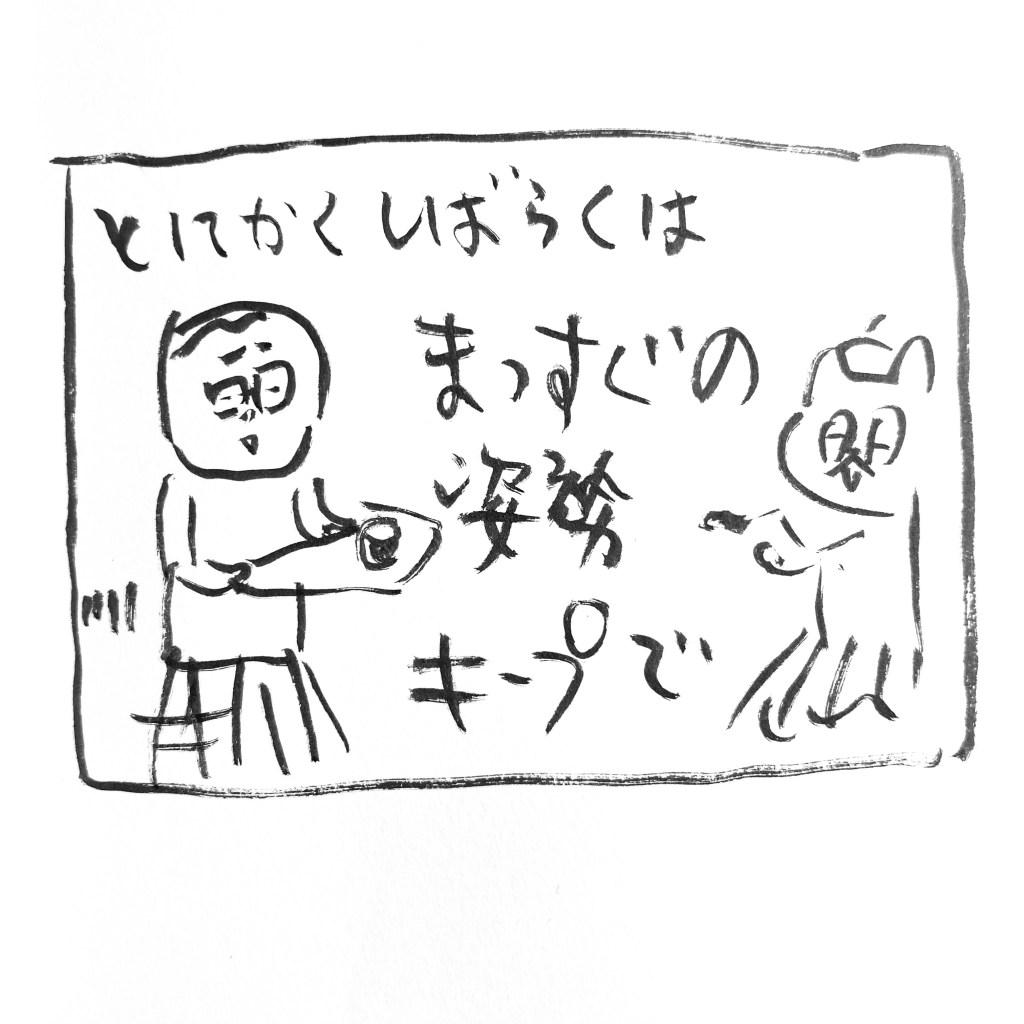 とにかくしばらくは
まっすぐの
姿勢
キープで